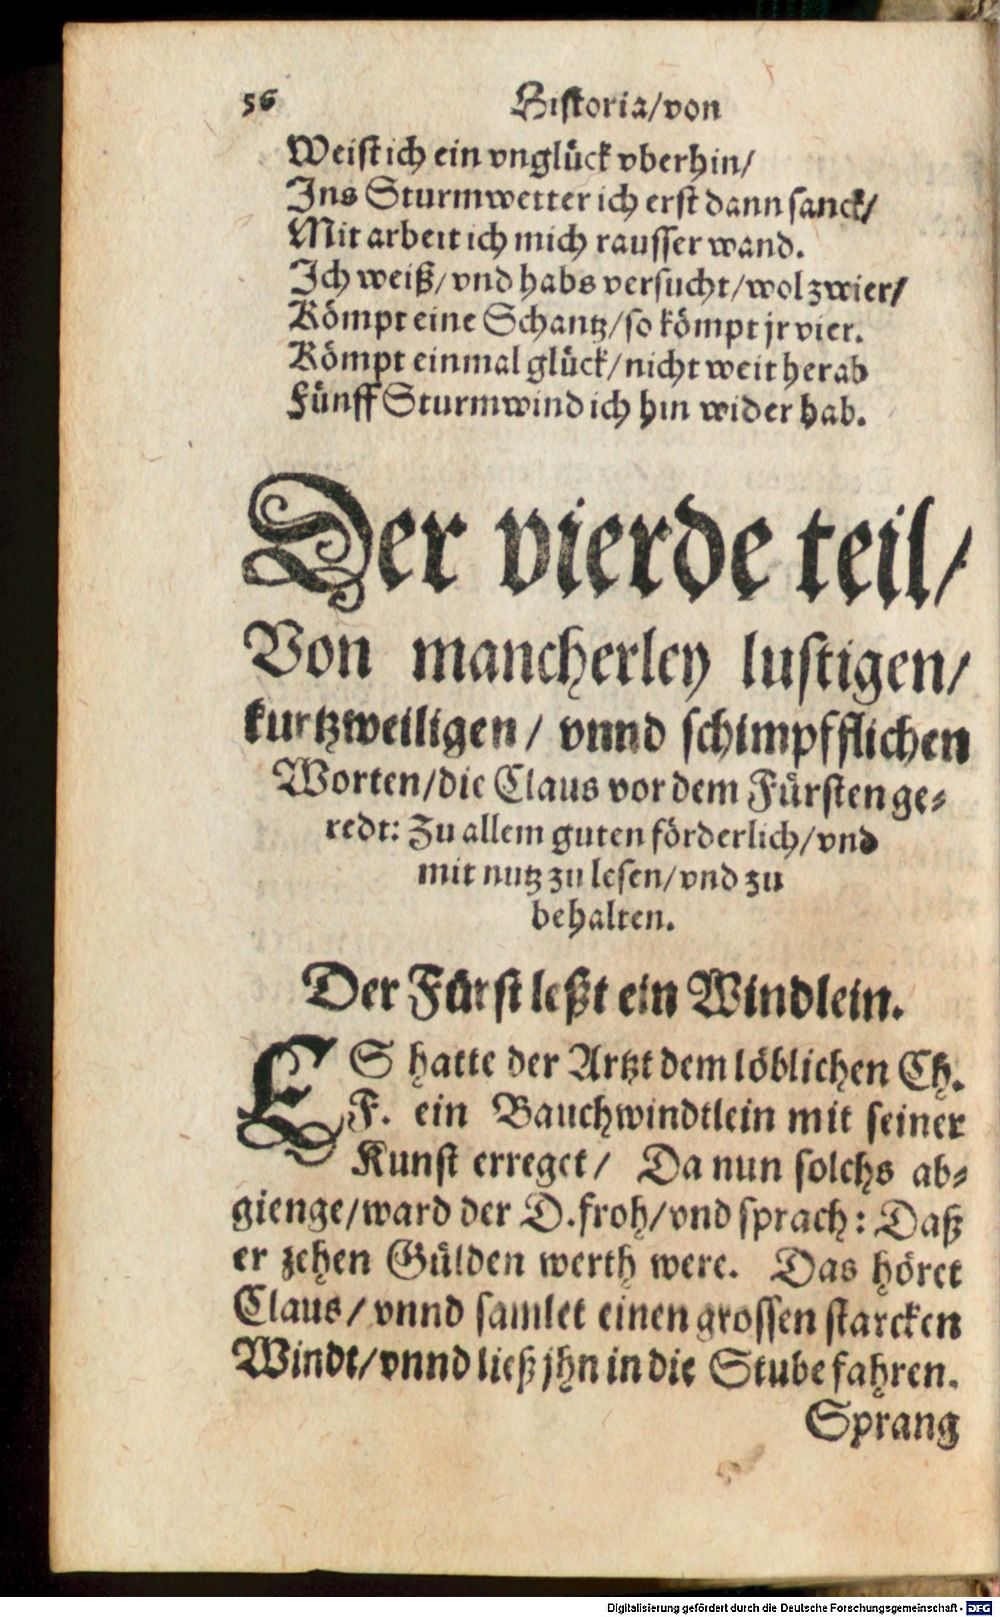 56 Historia/von
Weist ich ein vnglück vberhin/
Ins Sturmwetter ich erst dann sanck/
Mit arbeit ich mich rausser wand.
Ich weiß/vnd habs versucht/wol zwier/
Kömpt eine Schantz/so kömpt jr vier.
Kömpt einmal glück/nicht weit herab
Fünff Sturmwind ich hin wider hab.
Der vierde teil/
Von mancherley lustigen/
kurtzweiligen/ vnnd schimpfflichen
Worten/die Claus vor dem Fürsten ge-
redt: Zu allem guten förderlich/vnd
mit nutz zu lesen/vnd zu
behalten.
Der Fürst leßt ein Windlein.
ES hatte der Artzt dem löblichen Ch.
F. ein Bauchwindtlein mit seiner
Kunst erreget/ Da nun solchs ab-
gienge/ward der D. froh/vnd sprach: Daß
er zehen Gülden werth were. Das höret
Claus/ vnnd samlet einen grossen starcken
Windt/vnnd ließ jhn in die Stube fahren.
Sprang
Digitalisierung gefördert durch die Deutsche Forschungsgemeinschaft - DFG